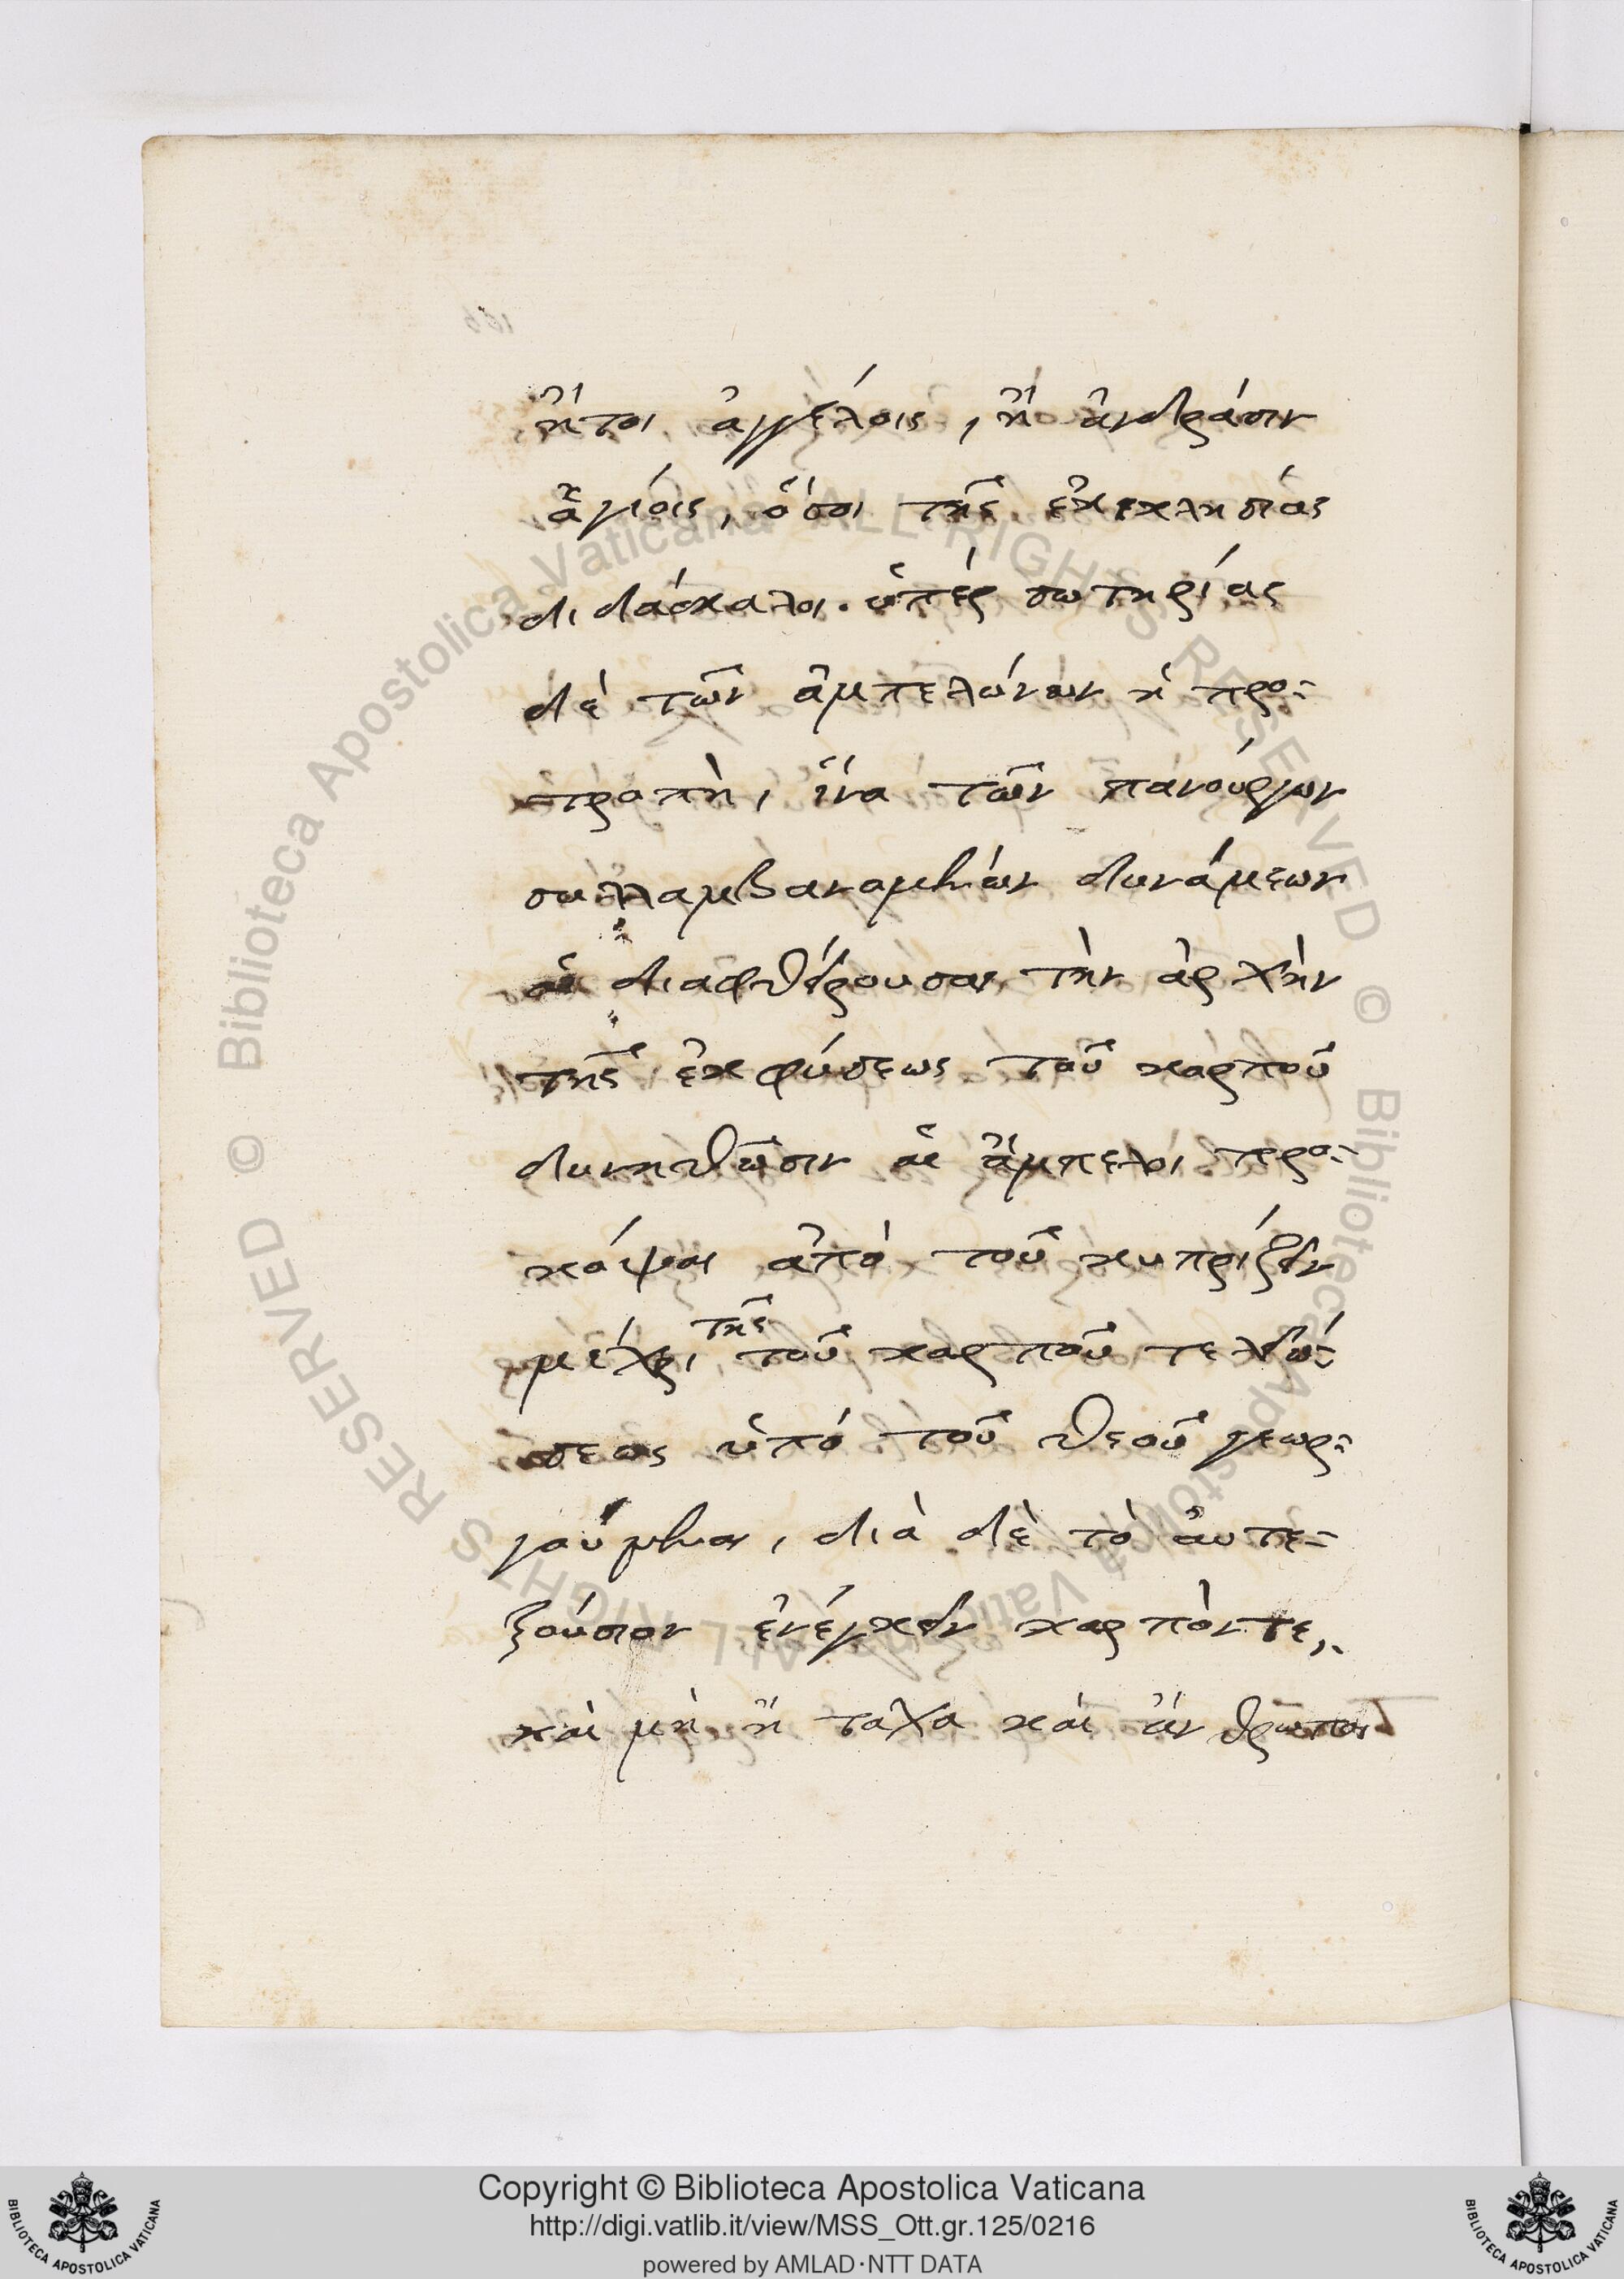 ἤτοι ἀγγέλοις, ἢ ἀνδράσιν
ἁγίοις, ὅσοι τῆς ἐκκλησίας
διδάσκαλοι. ὑπὲρ σωτηρίας
δὲ τῶν ἀμπελώνων ἡ προ-
τροπὴ, ἵνα τῶν πανούργων
συλλαμβανομένων δυνάμεων
αἳ διαφθείρουσαι τὴν ἀρχὴν
τῆς ἐκφύσεως τοῦ καρποῦ
δυνηθῶσιν αἱ ἄμπελοι προ-
κόψαι ἀπὸ τοῦ κυπρίζειν
μέχρι τῆς τοῦ καρποῦ τελειώ-
σεως ὑπὸ τοῦ θεοῦ γεωρ-
γούμεναι, διὰ δὲ τὸ αὐτε-
ξούσιον ἐνέγκειν καρπόν τε,
καὶ μὴ ἢ τάχα καὶ ἄνθρωποι
Copyright © Biblioteca Apostolica Vaticana
http://digi.vatlib.it/view/MSS_Ott.gr.125/0216
powered by AMLAD·NTT DATA
BIBLIOTECA APOSTOLICA VATICANA
BIBLIOTECA APOSTOLICA VATICANA
© Biblioteca Apostolica Vaticana ALL RIGHTS RESERVED © Biblioteca Apostolica Vaticana ALL RIGHTS RESERVED